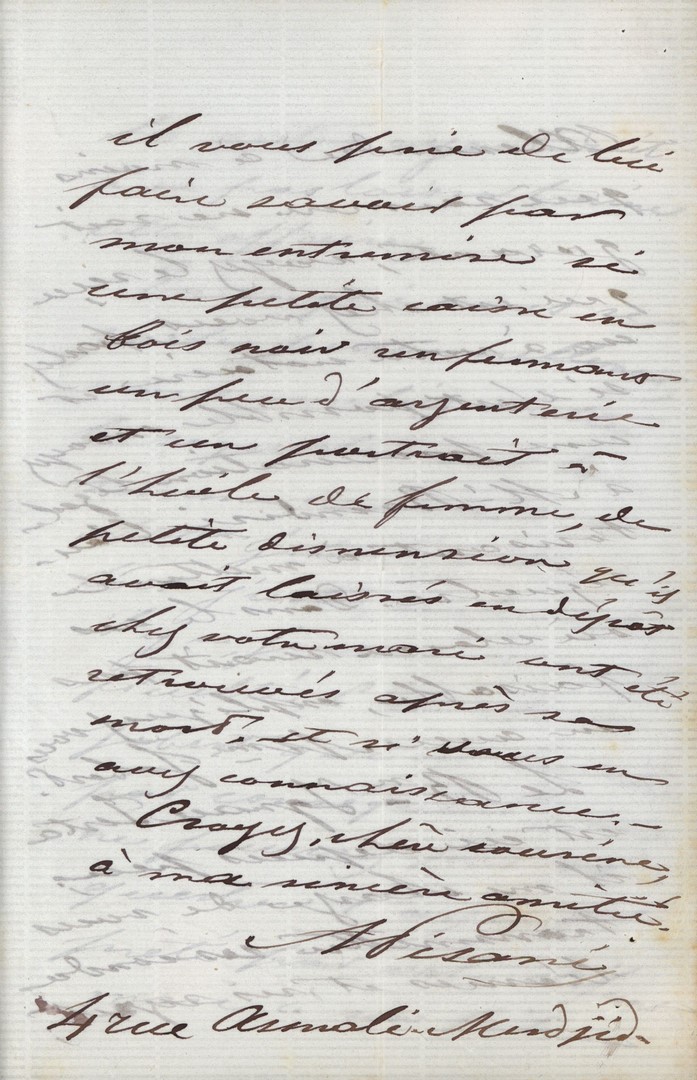 il vous prie de lui
faire savoir par
mon entremise si
une petite caisse en
bois noir renfermans
un peu d'argenterie
et un portrait à
l'huile de femme, de
petite dimension qu'il
avait laissés en dépôt
chez votre mari ont été
retrouvés après sa
mort, et si vous en
avez connaissance. –
Croyez, chère cousine,
à ma sincère amitié.
A Pisani
4 rue Asmali-Medjid.